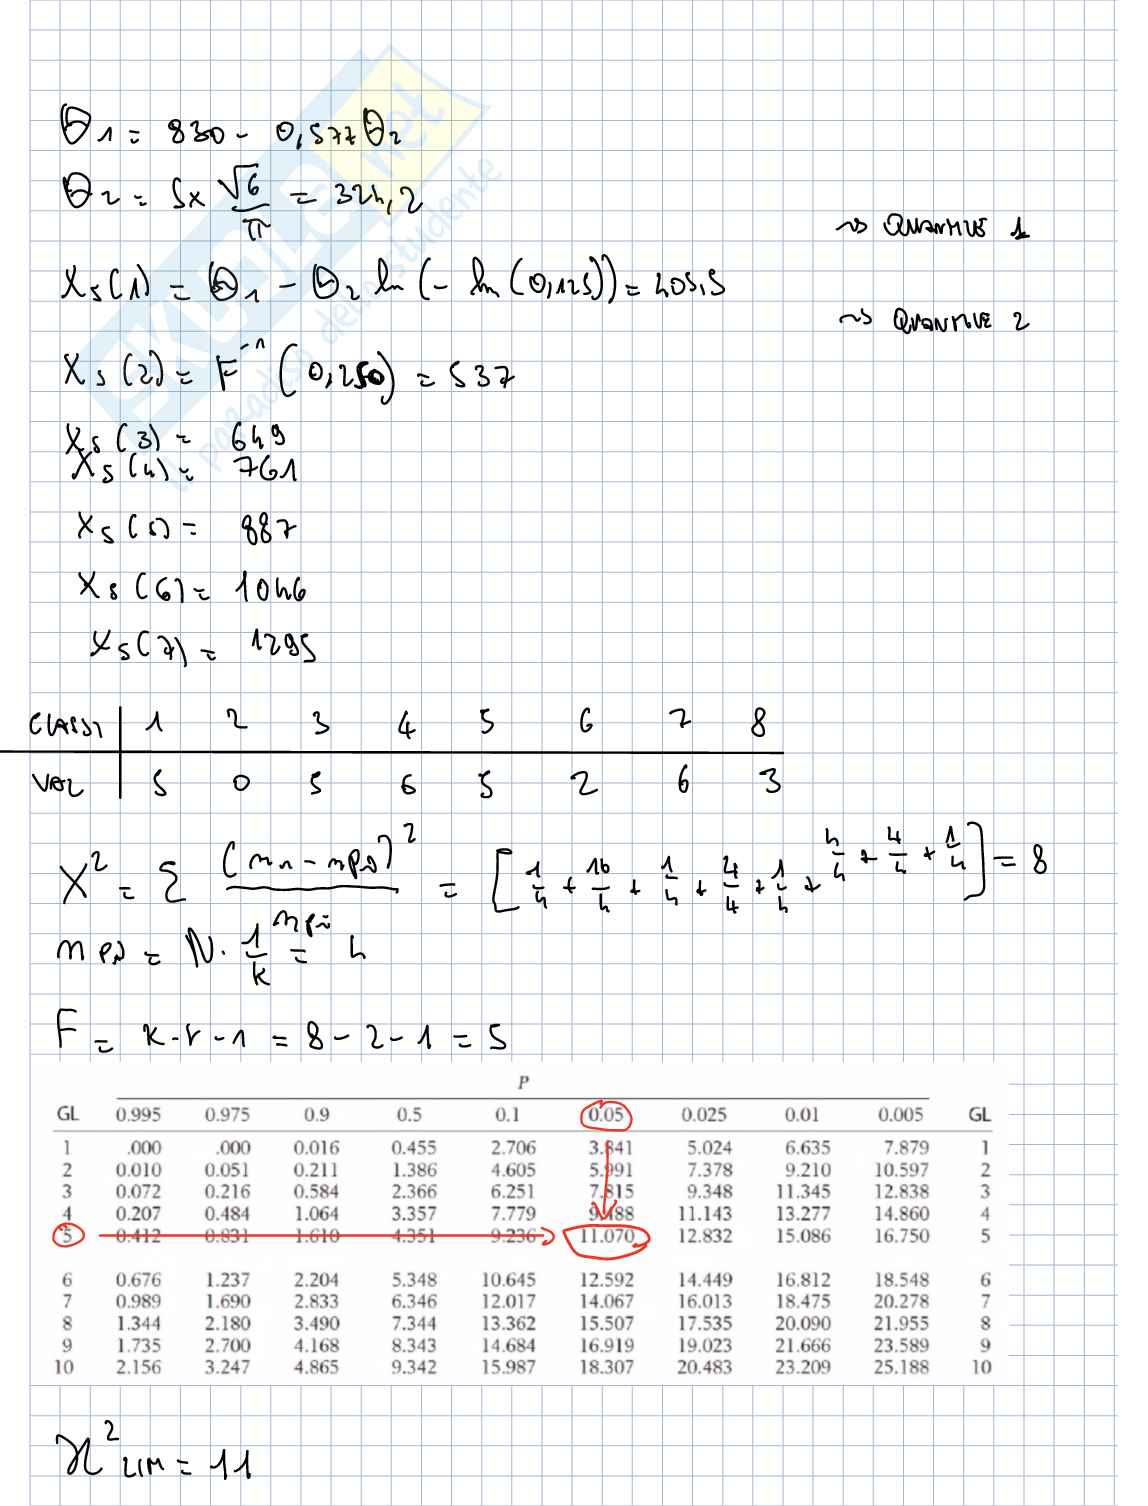 θ1 = 830 - 0,577 θ2
θ2 = Sx √6/π = 324,2
~> QUANTILE 1
Xs(1) = θ1 - θ2 ln(-ln(0,125)) = 405,5
~> QUANTILE 2
Xs(2) = F^-1 (0,250) = 537
Xs(3) = 649
Xs(4) = 761
Xs(5) = 887
Xs(6) = 1046
Xs(7) = 1295
CLASSI 1 2 3 4 5 6 7 8
VAL 5 0 5 6 5 2 6 3
X² = Σ (ni - npi)² / npi = [1/4 + 16/4 + 1/4 + 4/4 + 1/4 + 4/4 + 4/4 + 1/4] = 8
npi = N · 1/k = 4
F = k - r - 1 = 8 - 2 - 1 = 5
P
GL 0.995 0.975 0.9 0.5 0.1 0.05 0.025 0.01 0.005 GL
1 .000 .000 0.016 0.455 2.706 3.841 5.024 6.635 7.879 1
2 0.010 0.051 0.211 1.386 4.605 5.991 7.378 9.210 10.597 2
3 0.072 0.216 0.584 2.366 6.251 7.815 9.348 11.345 12.838 3
4 0.207 0.484 1.064 3.357 7.779 9.488 11.143 13.277 14.860 4
5 0.412 0.831 1.610 4.351 9.236 11.070 12.832 15.086 16.750 5
6 0.676 1.237 2.204 5.348 10.645 12.592 14.449 16.812 18.548 6
7 0.989 1.690 2.833 6.346 12.017 14.067 16.013 18.475 20.278 7
8 1.344 2.180 3.490 7.344 13.362 15.507 17.535 20.090 21.955 8
9 1.735 2.700 4.168 8.343 14.684 16.919 19.023 21.666 23.589 9
10 2.156 3.247 4.865 9.342 15.987 18.307 20.483 23.209 25.188 10
X² LIM = 11